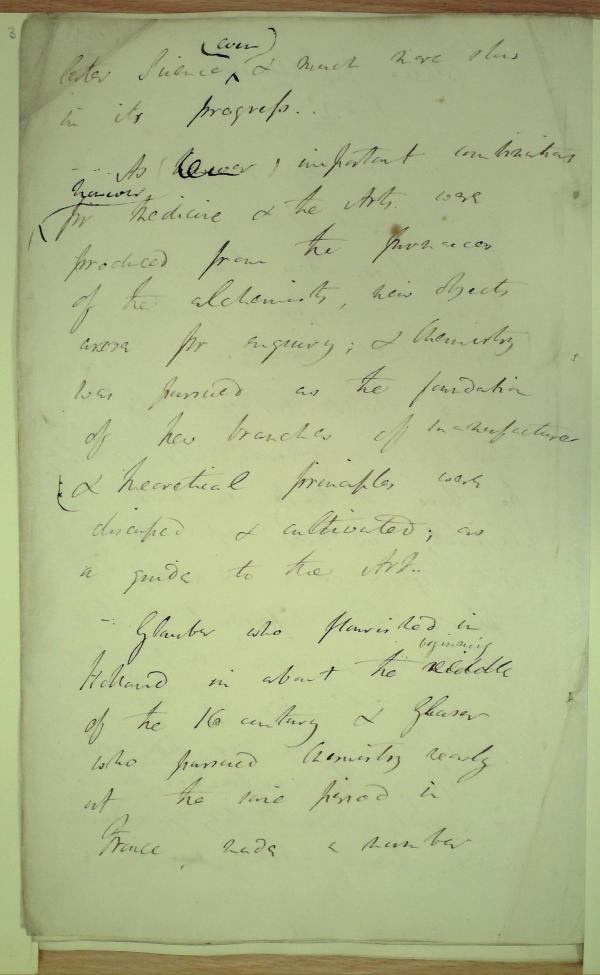 3
(even)
later Science, & much more slow
in its progress..
As (however) important combinations
however
for Medicine & the Arts were
produced from the furnaces
of the alchemists, new objects
arose for enquiry; & Chemistry
was pursued as the foundation
of new branches of manufacture
& theoretical principles were
discussed & cultivated; as
a guide to the Art..
Glauber who flourished in
beginning
Holland in about the middle
of the 16 century & Glaser
who pursued Chemistry nearly
at the same period in
France, made a number